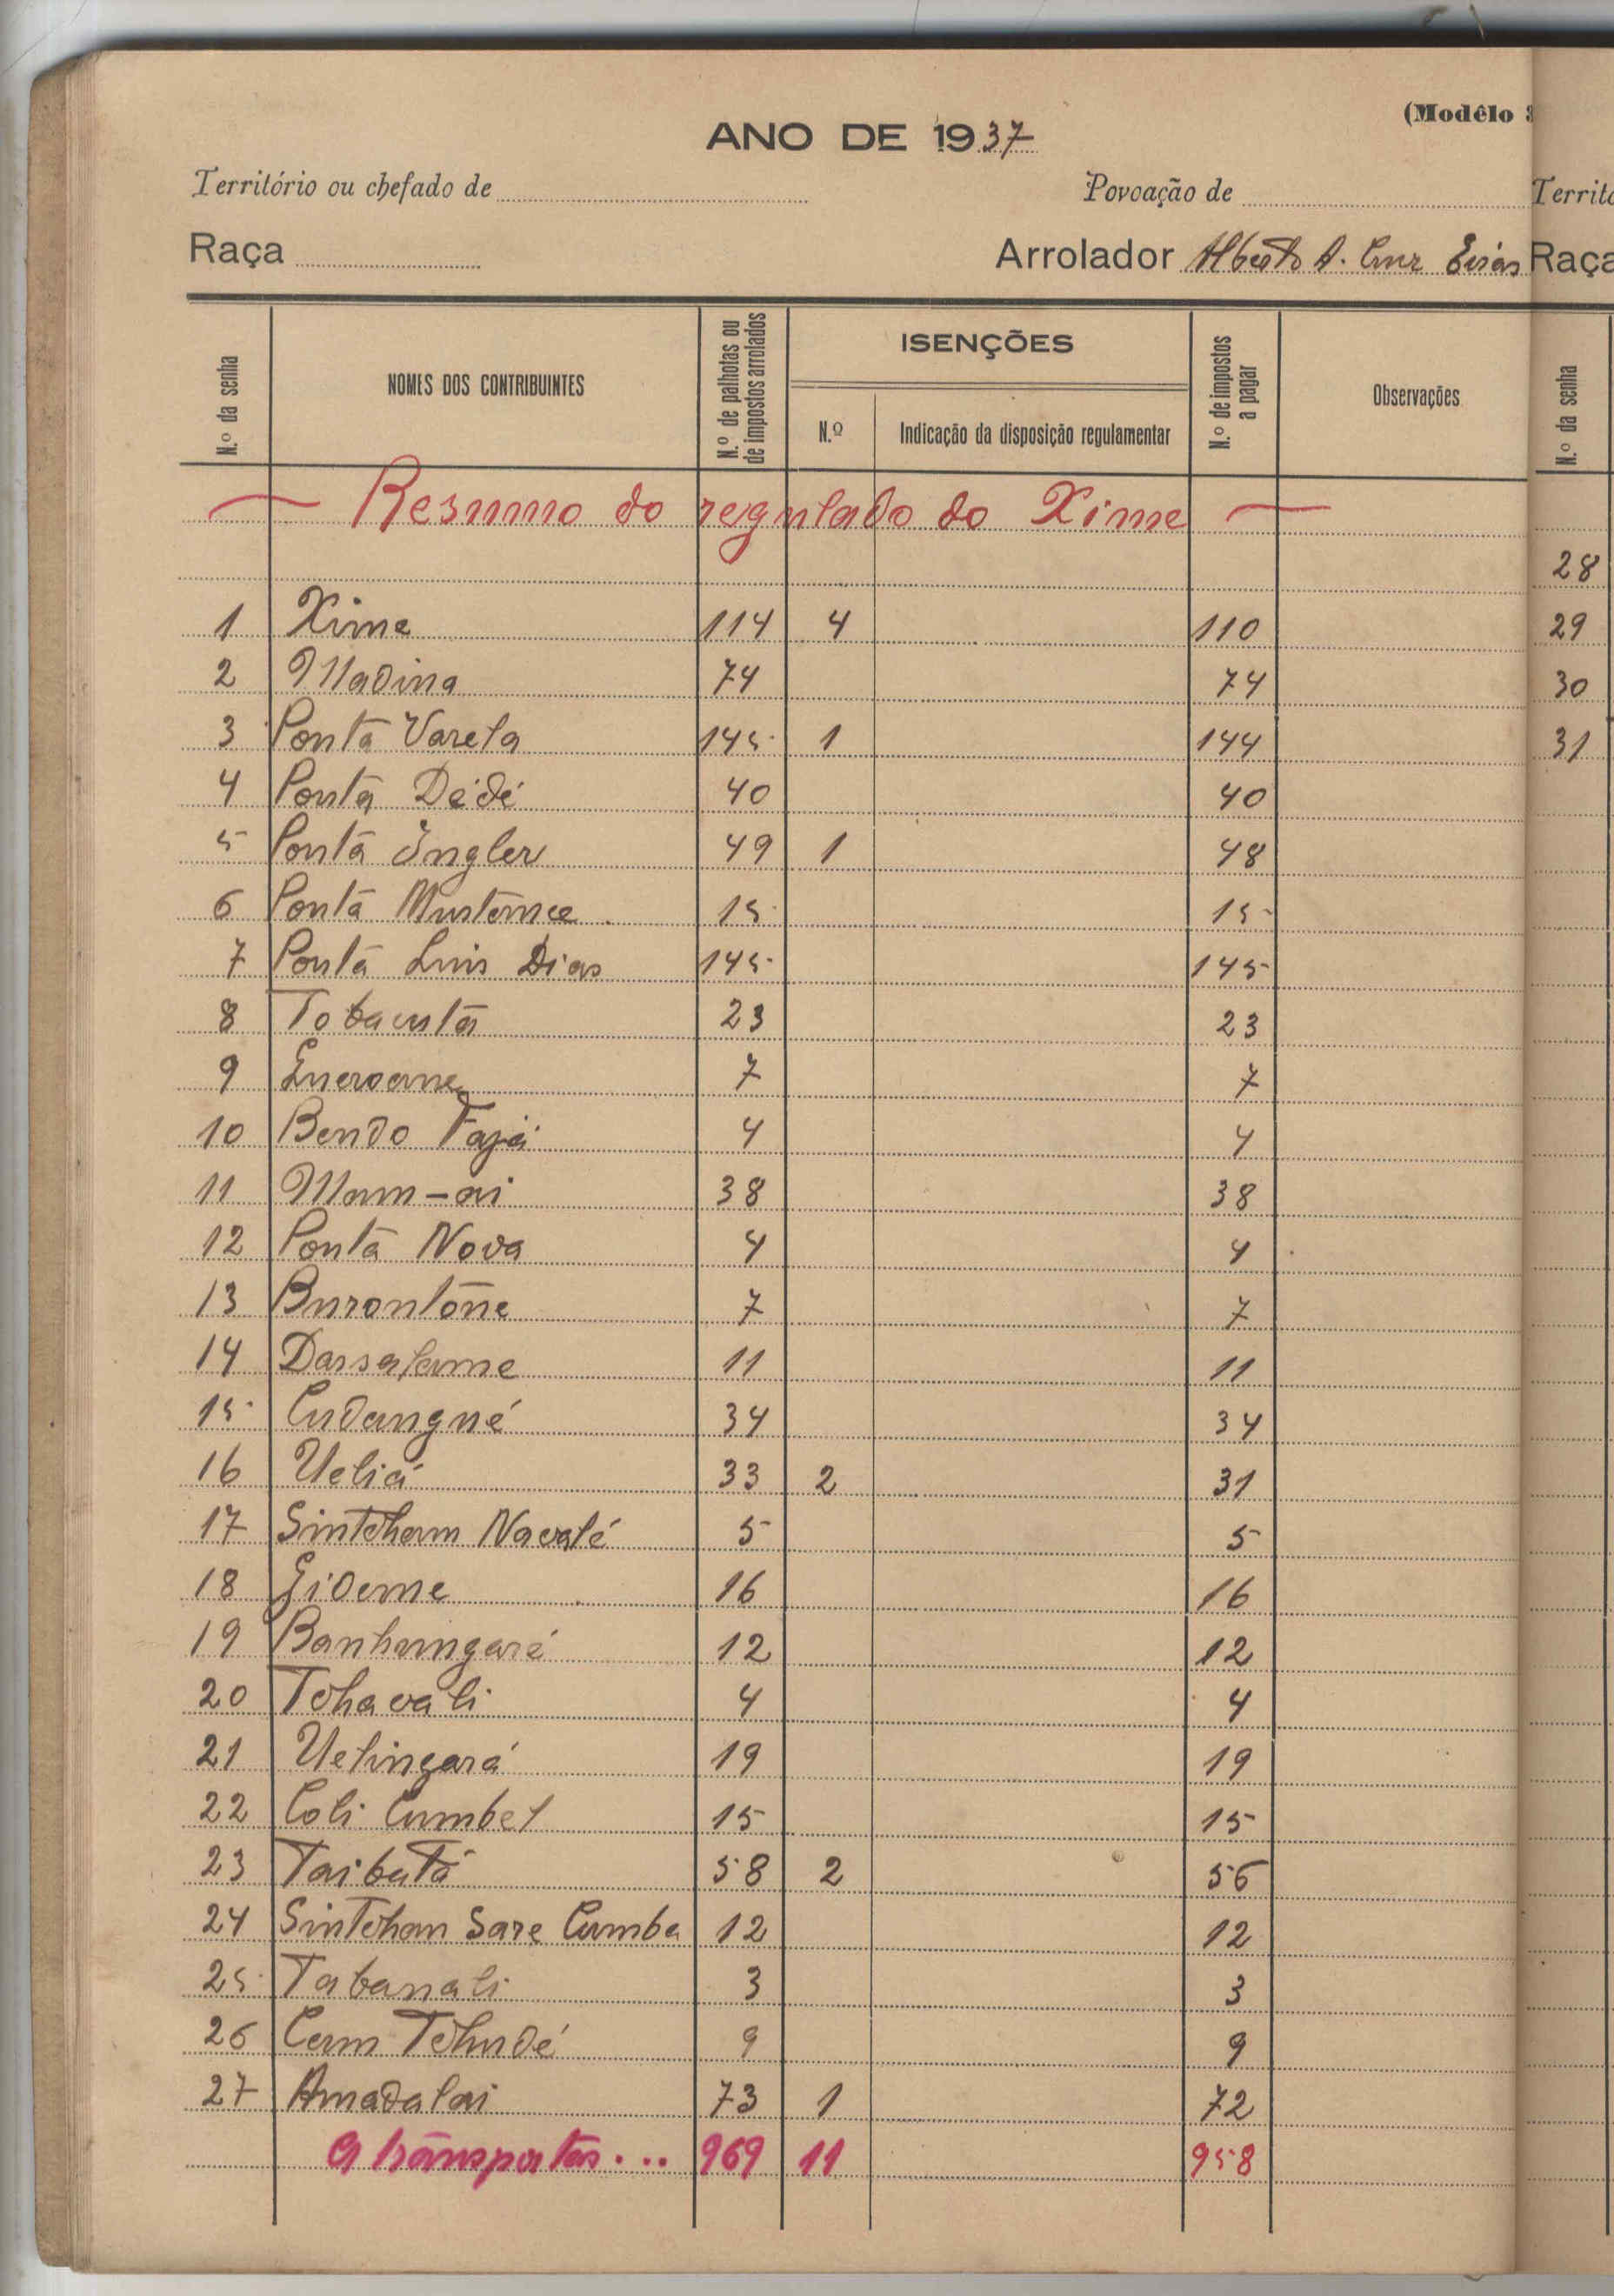 (Modêlo 3
ANO DE 1937
Território ou chefado de Povoação de
Raça Arrolador Alberto A. Cruz
N.º da senha
NOMES DOS CONTRIBUINTES
N.º de palhotas ou de impostos arrolados
ISENÇÕES
N.º
Indicação da disposição regulamentar
N.º de impostos a pagar
Observações
Resumo do regulado do Xime
1 Xime 114 4 110
2 Madina 74 74
3 Ponta Varela 145 1 144
4 Ponta Dédé 40 40
5 Ponta Ingler 49 1 48
6 Ponta 15 15
7 Ponta Luis Dias 145 145
8 Tobacutá 23 23
9 7 7
10 Bendo Fajá 4 4
11 Mam-ai 38 38
12 Ponta Nova 4 4
13 Burontône 7 7
14 Dassalame 11 11
15 Cudangué 34 34
16 Ueliá 33 2 31
17 Sintcham Navalé 5 5
18 Gideme 16 16
19 Banhungaré 12 12
20 Tchavali 4 4
21 Uelingará 19 19
22 Coli Cumbel 15 15
23 Taibatá 58 2 56
24 Sintcham Sare Cumba 12 12
25 Tabanali 3 3
26 Cam Tchudé 9 9
27 Amadalai 73 1 72
A transportar... 969 11 958
Territó
Raça
N.º da senha
28
29
30
31